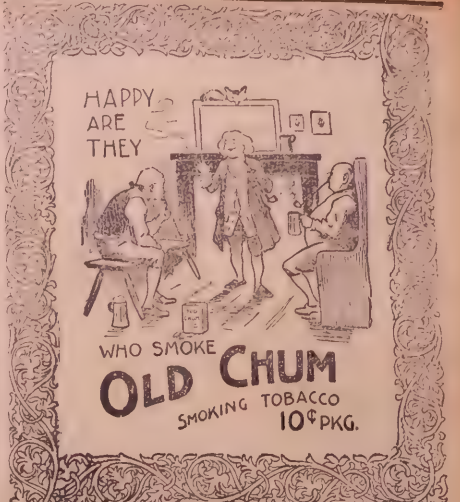 HAPPY
ARE
THEY
OLD
CHUM
WHO SMOKE
OLD CHUM
SMOKING TOBACCO
10¢ PKG.